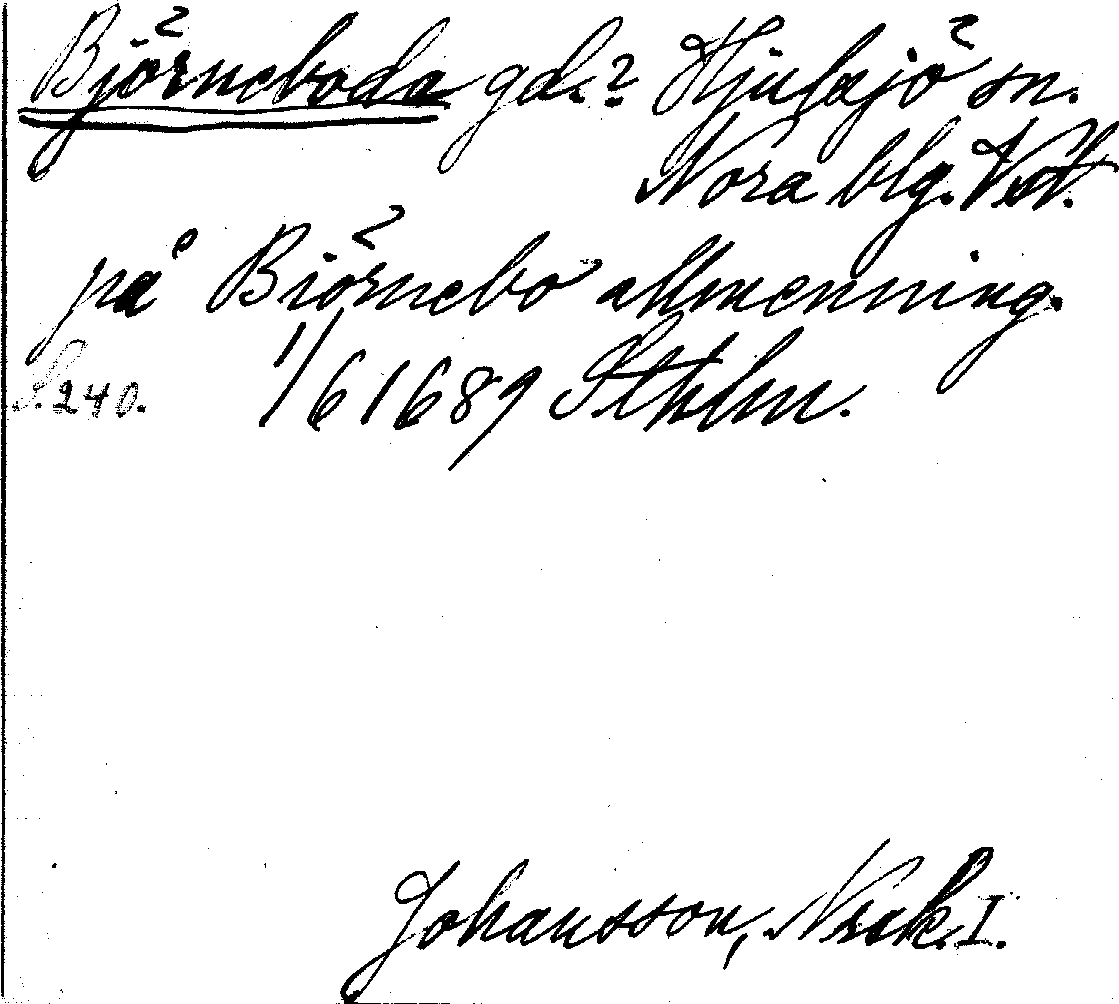 Björneboda gd.? Hjulsjö sn.
Nora blg. Vstl.
på Biörnebo allmenning.
S. 240. 1/6 1689 Sthlm.
Johansson, Norsk. I.